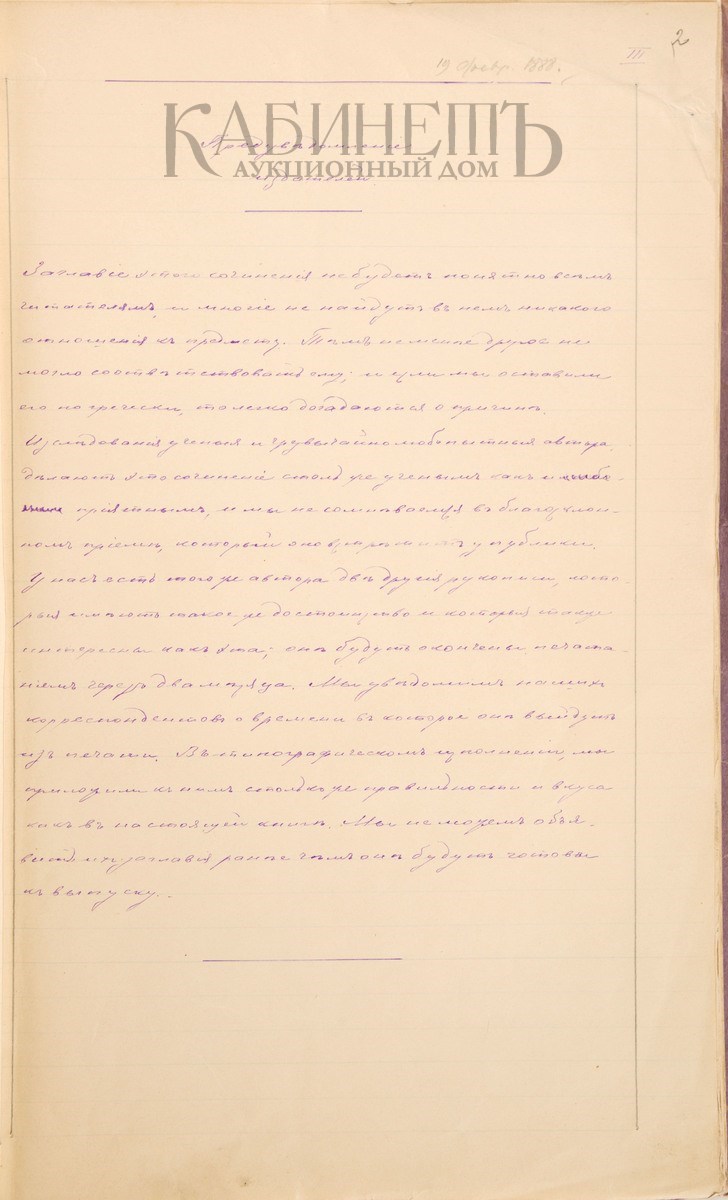 2
III
19 1888.
КАБИНЕТЪ
АУКЦИОННЫЙ ДОМ
Предувѣдомленіе
издателей.
Заглавіе этого сочиненія не будетъ понятно всѣмъ
читателямъ и многіе не найдутъ въ немъ никакого
отношенія къ предмету. Тѣмъ не менѣе другое не
могло соотвѣтствовать ему; и если мы оставили
его по гречески, то легко догадаются о причинѣ.
Изслѣдованія ученыя и чрезвычайно любопытныя автора,
дѣлаютъ это сочиненіе столь же ученымъ какъ и
пріятнымъ, и мы не сомнѣваемся въ благосклон-
номъ пріемѣ, который оно встрѣтитъ у публики.
У насъ есть того же автора двѣ другія рукописи, кото-
рыя имѣютъ такое же достоинство и которыя также
интересны какъ эта; онѣ будутъ окончены печата-
ніемъ черезъ два мѣсяца. Мы увѣдомимъ нашихъ
корреспондентовъ о времени въ которое онѣ выйдутъ
изъ печати. Въ типографическомъ исполненіи, мы
приложили къ нимъ столько же правильности и вкуса
какъ въ настоящей книгѣ. Мы не можемъ объя-
вить ихъ заглавія ранѣе чѣмъ онѣ будутъ готовы
къ выпуску.